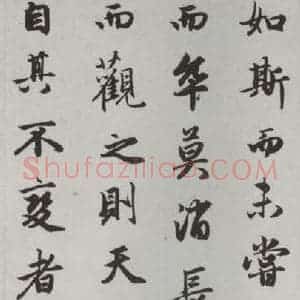 如斯而未嘗
而卒莫消長
而觀之則天
自其不變者
Shufaziliao.COM